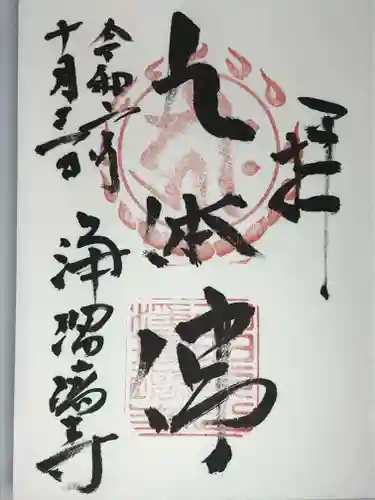 奉拝
九体佛
令和六年
十月三日
浄瑠璃寺